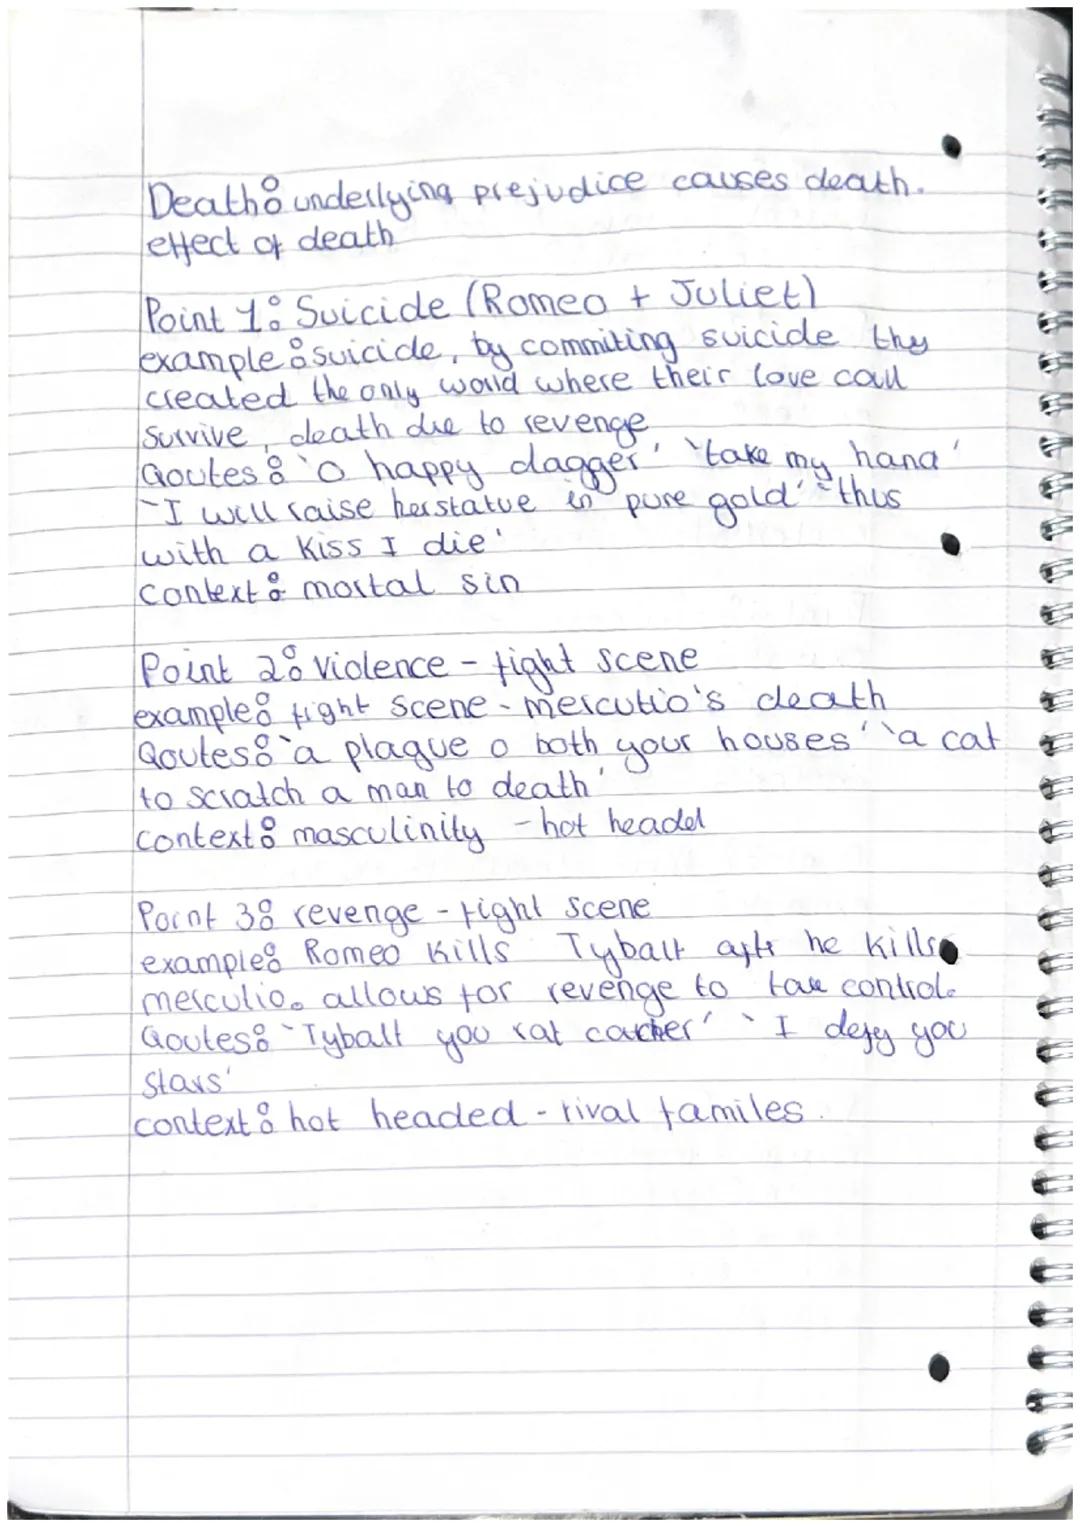 Death: underlying prejudice causes death.
effect of death
Point 1: Suicide (Romeo + Juliet)
example: suicide, by commiting suicide thy
created the only world where their love coul
survive, death due to revenge
Qoutes: 'O happy dagger' 'take my hand'
-I will raise her statue in pure gold' 'thus
with a kiss I die'
context: mortal sin
Point 2: Violence - fight scene
example: fight scene - mercutio's death
Qoutes: 'a plague o both your houses' 'a cat
to scratch a man to death'
context: masculinity - hot headed
Point 3: revenge - fight scene
example: Romeo kills Tybalt aftr he kills
mercutio. allows for revenge to take control.
Qoutes: 'Tybalt you rat catcher' 'I defy you
stars'
context: hot headed - rival familes.